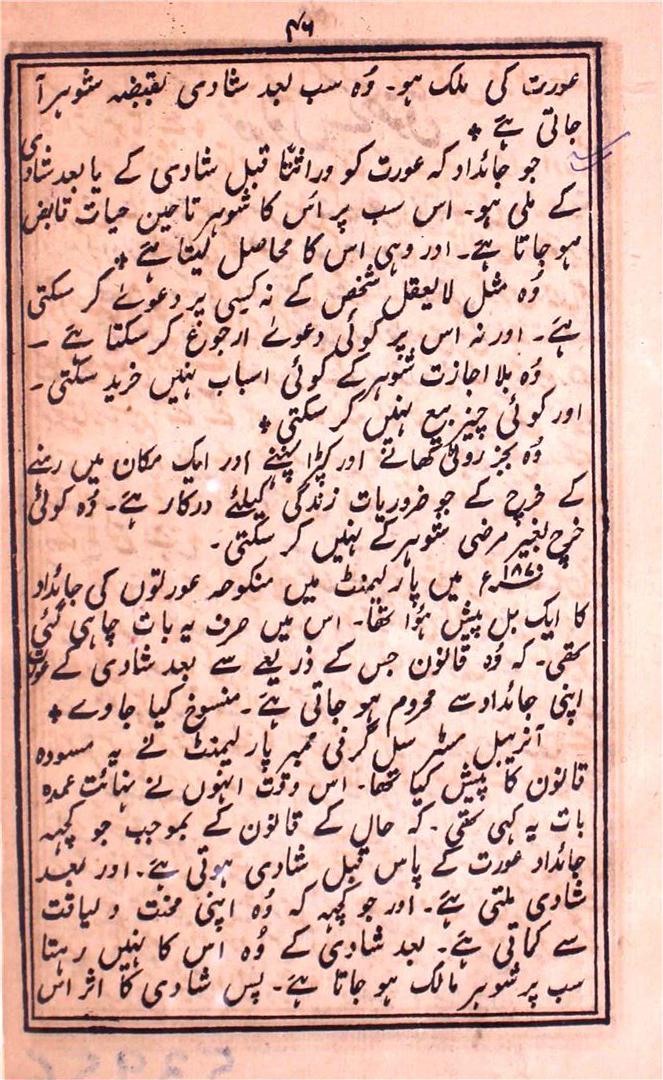 ۴۶
عورت کی ملک ہو۔ وُہ سب بعد شادی بقبضہ شوہر آ
جاتی ہے *
جو جائداد کہ عورت کو وراثتًا قبل شادی کے یا بعد شادی
کے ملی ہو۔ اس سب پر اس کا شوہر تاحین حیات قابض
ہو جاتا ہے۔ اور وہی اس کا محاصل لیتا ہے *
وُہ مثل لایعقل شخص کے نہ کسی پر دعوےٰ کر سکتی
ہے۔ اور نہ اس پر کوئی دعوےٰ ارجوع کر سکتا ہے ۔
وُہ بلا اجازت شوہر کے کوئی اسباب نہیں خرید سکتی۔
اور کوئی چیز بیع نہیں کر سکتی *
وُہ بجز روٹی کھانے اور کپڑا پہننے اور ایک مکان میں رہنے
کے خرچ کے جو ضروریات زندگی کیلئے درکار ہے۔ وُہ کوئی
خرچ بغیر مرضی شوہر کے نہیں کر سکتی۔
۱۸۷۰ء میں پارلیمنٹ میں منکوحہ عورتوں کی جائداد
کا ایک بل پیش ہُوا تھا۔ اس میں صرف یہ بات چاہی گئی
تھی۔ کہ وُہ قانون جس کے ذریعے سے بعد شادی کے عورت
اپنی جائداد سے محروم ہو جاتی ہے۔ منسوخ کیا جاوے *
آنریبل مسٹر سل گرنی ممبر پارلیمنٹ نے یہ مسودہ
قانون کا پیش کیا تھا۔ اس وقت انہوں نے نہائت عمدہ
بات یہ کہی تھی۔ کہ حال کے قانون کے بموجب جو کچہہ
جائداد عورت کے پاس قبل شادی ہوتی ہے۔ اور بعد
شادی ملتی ہے۔ اور جو کچہہ کہ وُہ اپنی محنت و لیاقت
سے کماتی ہے۔ بعد شادی کے وُہ اس کا نہیں رہتا
سب پر شوہر مالک ہو جاتا ہے۔ پس شادی کا اثر اس